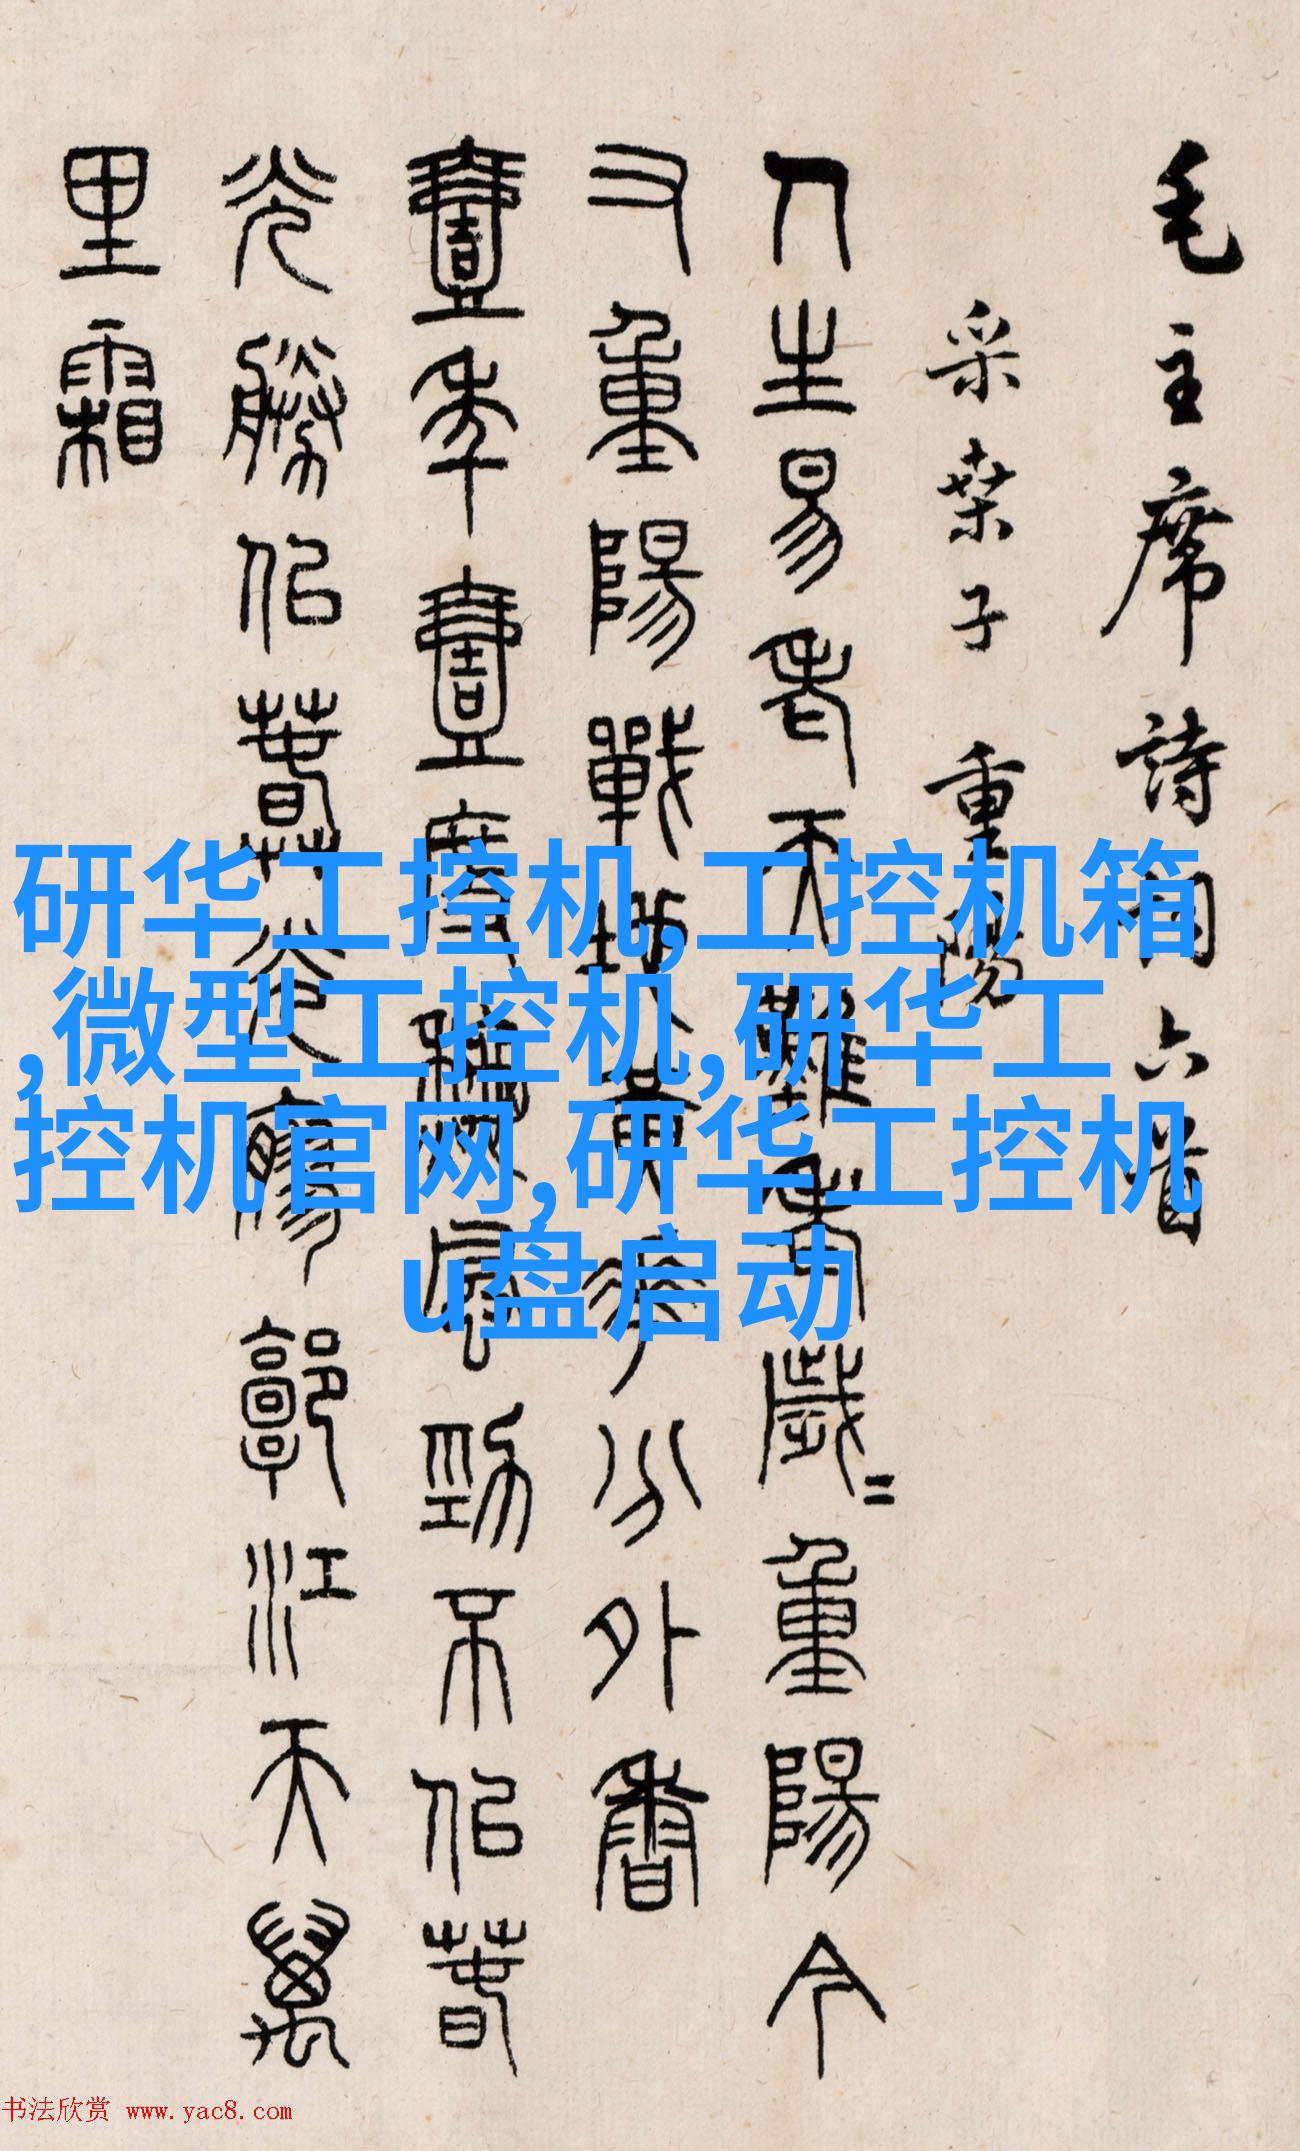 毛主席詩詞六首
采桒子 重陽
人生易老天難老歲=重陽今
又重陽戰地黃華分外香
壹年壹度秋風勁不佀萅
光勝佀萅光寥郭江天萬
里霜
研华工控机,工控机箱
,微型工控机,研华工
控机官网,研华工控机
u盘启动
书法欣赏 www.yac8.com